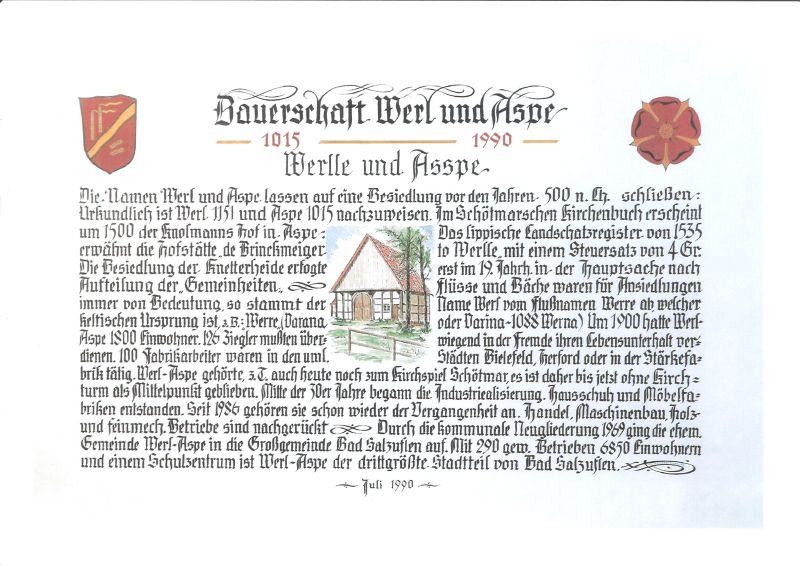 Bauerschaft Werl und Aspe
1015 1990
Werlle und Asspe
Die Namen Werl und Aspe lassen auf eine Besiedlung vor den Jahren 500 n. Ch. schließen:
Urkundlich ist Werl 1151 und Aspe 1015 nachzuweisen. Im Schötmarschen Kirchenbuch erscheint
um 1500 der Knolmanns Hof in Aspe: Das lippische Landschatzregister von 1535
erwähnt die Hofstätte de Brinckmeiger to Werlle, mit einem Steuersatz von 4 Gr.
Die Besiedlung der Knetterheide erfogte erst im 19. Jahrh. in der Hauptsache nach
Aufteilung der „Gemeinheiten„ Flüsse und Bäche waren für Ansiedlungen
immer von Bedeutung, so stammt der Name Werl vom Flußnamen Werre ab, welcher
keltischen Ursprung ist, z.B.: Werre, (Varana oder Varina-1088 Werna) Um 1900 hatte Werl-
Aspe 1800 Einwohner. 126 Ziegler mußten über- wiegend in der Fremde ihren Lebensunterhalt ver-
dienen. 100 Fabrikarbeiter waren in den uml. Städten Bielefeld, Herford oder in der Stärkefa-
brik tätig. Werl-Aspe gehörte, z.T. auch heute noch zum Kirchspiel Schötmar, es ist daher bis jetzt ohne Kirch-
turm als Mittelpunkt geblieben. Mitte der 30er Jahre begann die Industriealisierung. Hausschuh und Möbelfa-
briken entstanden. Seit 1986 gehören sie schon wieder der Vergangenheit an. Handel, Maschinenbau, Holz-
und feinmech. Betriebe sind nachgerückt Durch die kommunale Neugliederung 1969 ging die ehem.
Gemeinde Werl-Aspe in die Großgemeinde Bad Salzuflen auf. Mit 290 gew. Betrieben 6850 Einwohnern
und einem Schulzentrum ist Werl-Aspe der drittgrößte Stadtteil von Bad Salzuflen.
Juli 1990